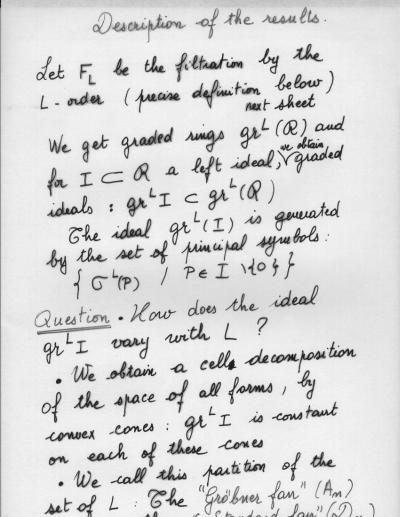 Description of the results.
Let F_L be the filtration by the
L-order (precise definition below)
next sheet
We get graded rings gr^L(R) and
for I ⊂ R a left ideal, we obtain graded
ideals : gr^L I ⊂ gr^L(R)
The ideal gr^L(I) is generated
by the set of principal symbols :
{ σ^L(P) / P ∈ I \ {0} }
Question . How does the ideal
gr^L I vary with L ?
• We obtain a cell decomposition
of the space of all forms, by
convex cones : gr^L I is constant
on each of these cones
• We call this partition of the
set of L : The "Gröbner fan" (A_n)
"Standard fan" (D_n)